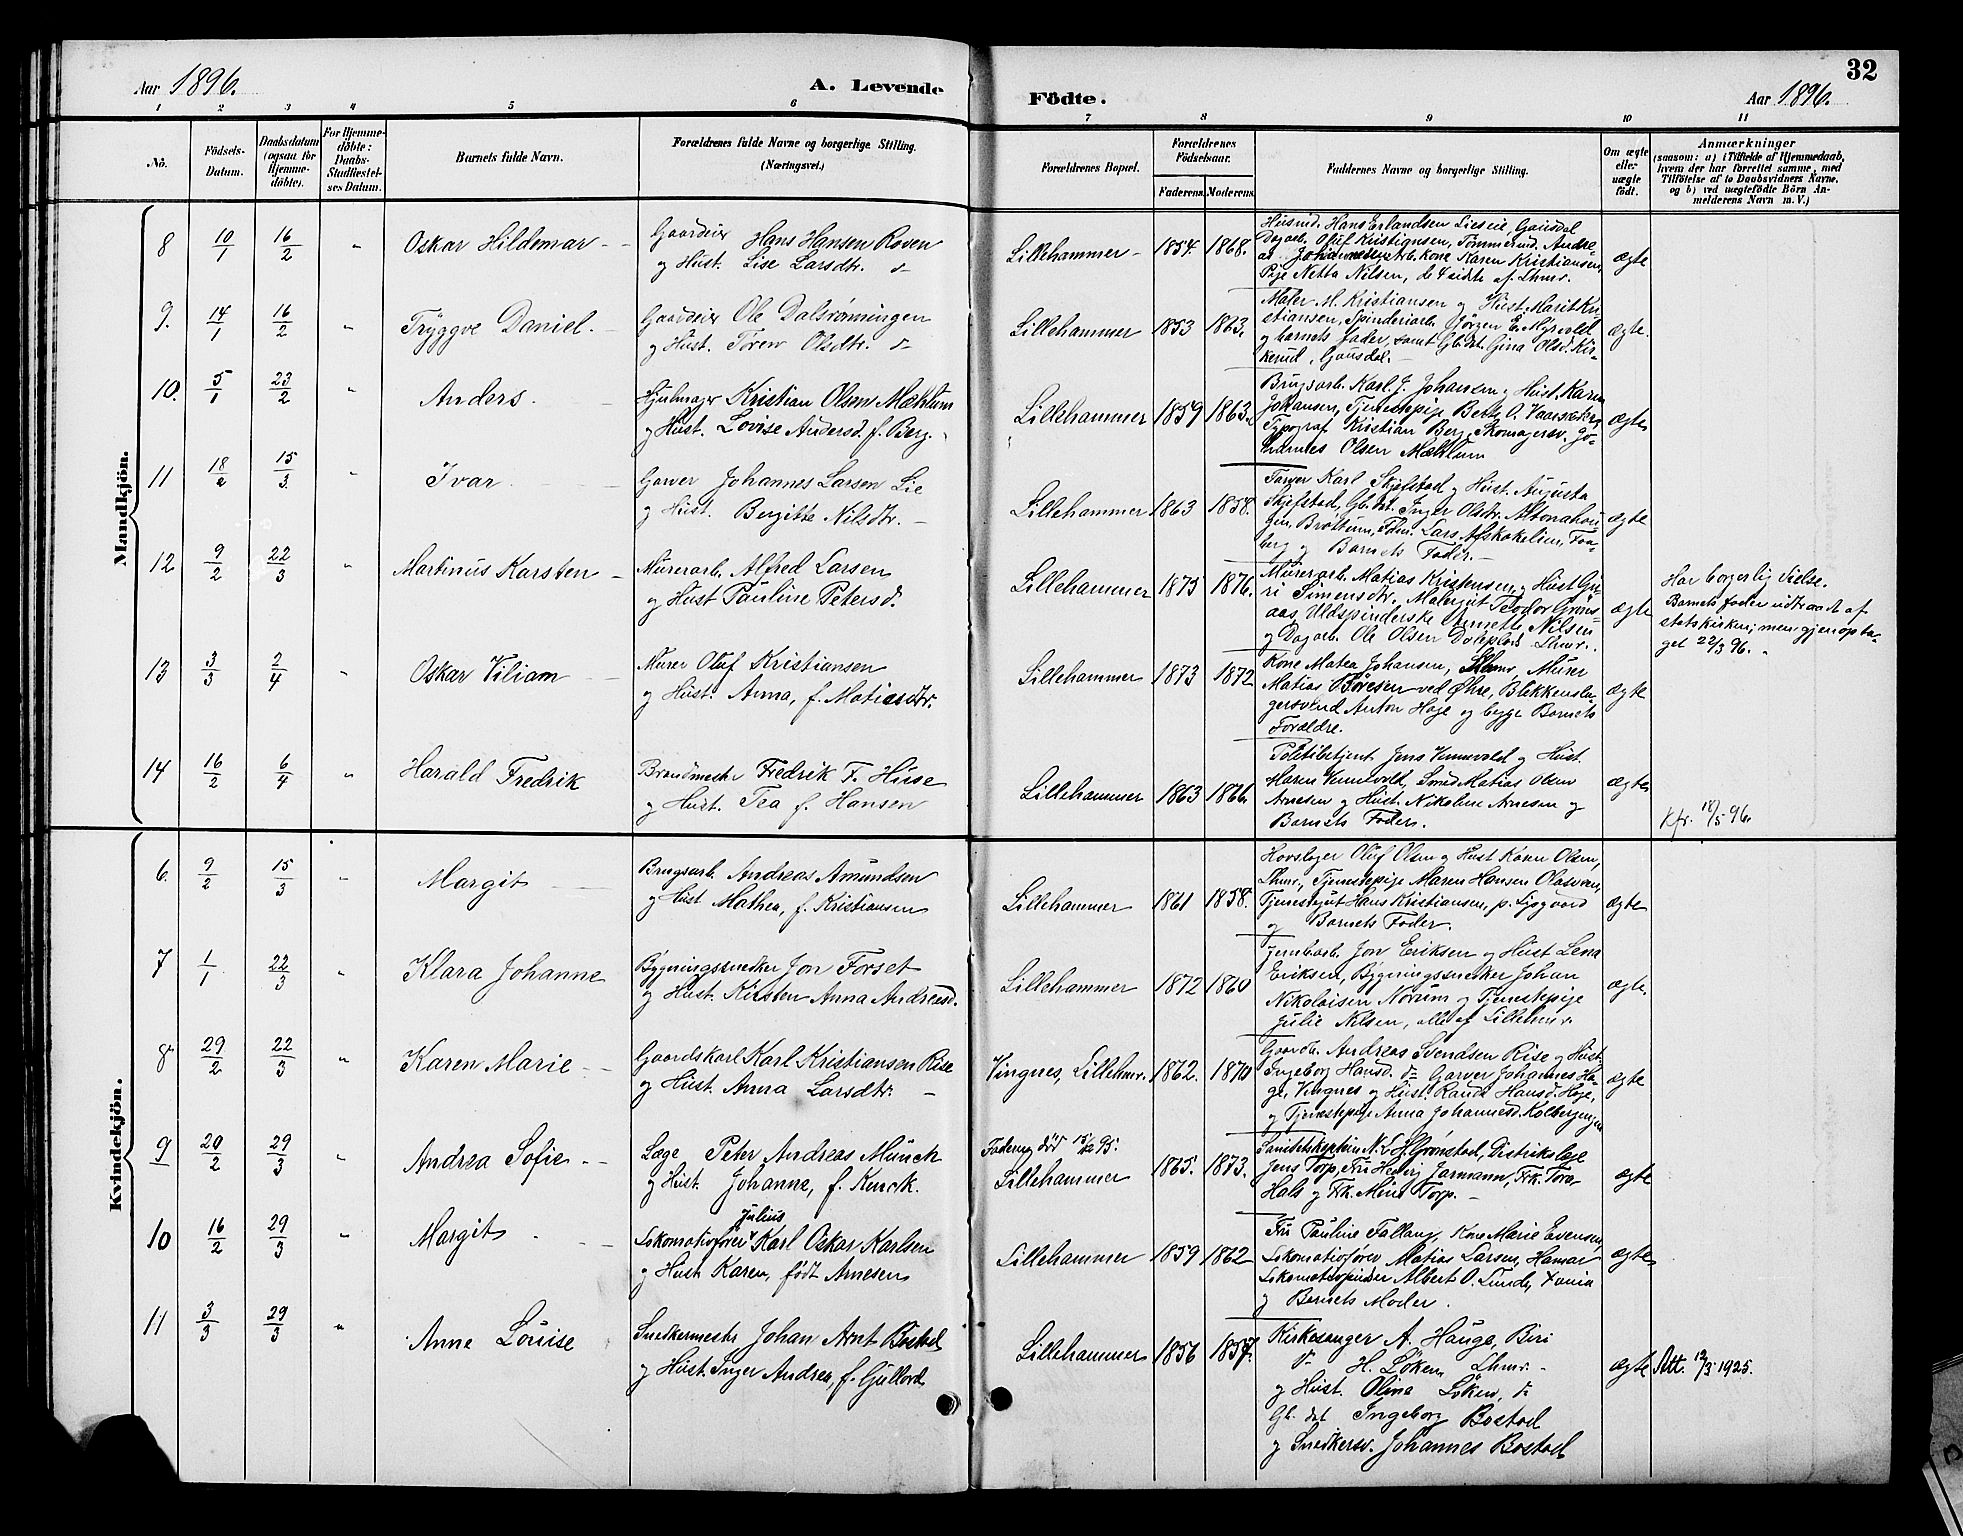 Aar 1896. A. Levende
Födte. Aar 1896. 32
1 2 3 4 5 6 7 8 9 10 11
No.
Födsels-
Datum.
Daabsdatum
(ogsaa for
Hjemme-
döbte).
For Hjemme-
döbte:
Daabs-
Stadfæstel-
ses Datum.
Barnets fulde Navn.
Forældrenes fulde Navne og borgerlige Stilling.
(Næringsvei.)
Forældrenes Bopæl.
Forældrenes
Födselsaar.
Faderens. Moderens.
Faddernes Navne og borgerlige Stilling.
Om ægte
eller
uægte
født.
Anmærkninger
(saasom: a) i Tilfælde af Hjemmedaab,
hvem der har forrettet samme, med
Tilföielse af to Daabsvidners Navne,
og b) ved uægtefödte Börn An-
melderens Navn m. V.)
Mandkjön.
8 10/1 16/2 " Oskar Hildemar
Gaardeier Hans Hansen Roven
og Hust. Lise Larsdtr.
Lillehammer 1854. 1868.
Husmd. Hans Erlandsen Lieseie, Gausdal
Dagarb. Oluf Kristiansen, Tømmermd. Andre
as Johannesen, Arb. kone Karen Kristiansen,
Pige Netta Nilsen, de 4 sidste af Lhmr.
ægte
9. 14/1 16/2 " Tryggve Daniel.
Gaardeier Ole Dalsrønningen
og Hust. Toren Olsdtr.
Lillehammer 1853 1863.
Maler M. Kristiansen og Hust. Marit Kri
stiansen, Spinderiarb. Jörgen E. Myrvold
og barnets fader, samt Gb. dat. Gina Olsd. Kir-
kerud, Gausdal.
ægte.
10. 5/1 23/2 " Anders.
Hjulmager Kristian Olsen Mæhlum
og Hust. Lovise Andersd. f. Berg.
Lillehammer 1859 1863.
Brugsarb. Karl J. Johansen og Hust. Karen
Johansen, Tjenestepige Bette O.
Typograf Kristian Berg, Skomagersv. Jo-
hannes Olsen Mæhlum
ægte
11 18/2 15/3 " Ivar
Garver Johannes Larsen Lie
og Hust. Bergitte Nilsdtr.
Lillehammer 1863 1858.
Farver Karl Skjelstad og Hust. Augusta
Skjelstad, Gb. dat. Inger Olsdtr.
Brøttum, Lars Faa-
berg og Barnets Fader.
ægte
12 9/2 22/3 " Martinus Karsten
Murerarb. Alfred Larsen
og Hust Pauline Petersd.
Lillehammer 1875 1876.
Murerarb. Matias Kristensen og Hust Gu-
ri Simensdtr. Malergut Teodor Grøns-
aas, Uldspinderske Annette Nilsen
og Dagarb. Ole Olsen Lhmr.
ægte
Har borgerlig vielse.
Barnets fader udtraadt af
statskirken; men gjenopta-
get 22/3 96.
13 3/3 2/4 " Oskar Viliam
Murer Oluf Kristiansen
og Hust. Anna, f. Matiasdtr.
Lillehammer 1873 1872
Kone Matea Johansen, Lhmr, Murer
Matias Børesen ved Øhre, Blikkensla-
gersvend Anton Hage og begge Barnets
Foraldre.
ægte
14 16/2 6/4 " Harald Fredrik
Brandmester Fredrik F. Huse
og Hust. Tea f. Hansen
Lillehammer 1863 1866.
Politibetjent Jens Vennevold og Hust.
Maren Vennevold, Smed Matias Olsen
Arnesen og Hust. Nikoline Arnesen og
Barnets Fader.
ægte
Kfr. 18/5 96.
Kvindekjön.
6. 9/2 15/3 " Margit
Brugsarb. Andreas Amundsen
og Hust Mathea, f. Kristiansen
Lillehammer 1861 1858.
Hovslager Oluf Olsen og Hust Karen Olsen,
Lhmr., Tjenestepige Maren Hansen
Tjenestegut Hans Kristiansen, p.
og Barnets Fader.
ægte
7 1/1 22/3 " Klara Johanne
Bygningssnedker Jon Forset
og Hust. Kirsten Anna Andreasd.
Lillehammer 1872 1860
Jernbarb. Jon Eriksen og Hust Lena
Eriksen, Bygningssnedker Johan
Nikolaisen Norum og Tjenestepige
Julie Nilsen, alle af Lillehmr.
ægte.
8 29/2 22/3 " Karen Marie
Gaardskarl Karl Kristiansen Rise
og Hust. Anna Larsdtr.
Vingnes, Lillehmr. 1862. 1870
Gaardb. Andreas Svendsen Rise og Hust.
Ingeborg Hansd. Garver Johannes Ha-
ge, Vingnes og Hust. Randi Hansd. Hage,
og Tjenestepige Anna Johannesd.
ægte
9 20/2 29/3 " Andrea Sofie
Læge Peter Andreas Munch
og Hust. Johanne, f. Kenck.
Faderen død 15/12 95.
Lillehammer 1865. 1873.
Sanitetskaptein N. Grønstad, Distriktslæge
Jens Torp, Fru Hedvig Jarmann, Frk. Tora
Hals og Frk. Mina Torp.
ægte
10 16/2 29/3 " Margit
Julius
Lokomotivfører Karl Oskar Karlsen
og Hust Karen, født Arnesen
Lillehammer 1859 1862
Fru Pauline Fallang, Kone Marie Evensen,
Lokomotivfører Matias Larsen, Hamar
Lokomotivpudser Albert O. Lunde,
og Barnets Moder.
ægte
11 3/3 29/3 " Anna Louise
Snedkermester Johan Arnt Bostad
og Hust. Inger Andrea, f. Gullord
Lillehammer 1856 1857.
Kirkesanger A. Hauge, Biri
H. Løken, Lhmr.
og Hust. Olina Løken,
Gb. dat Ingeborg Bostad
og Snedkersv. Johannes Bostad
ægte
Att. 12/3 1925.